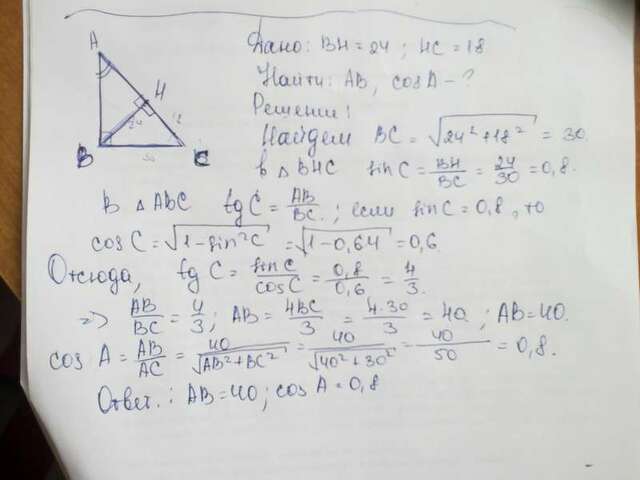 A
H
24
B
C
30
Дано: BH = 24 ; HC = 18
Найти: AB, cosA - ?
Решение:
Найдем BC = √24²+18² = 30.
В △ BHC sinC = BH/BC = 24/30 = 0,8.
В △ ABC tgC = AB/BC ; если sinC = 0,8, то
cosC = √1-sin²C = √1-0,64 = 0,6
Отсюда, tgC = sinC/cosC = 0,8/0,6 = 4/3.
=> AB/BC = 4/3 ; AB = 4BC/3 = 4·30/3 = 40 ; AB = 40.
cosA = AB/AC = 40/√AB²+BC² = 40/√40²+30² = 40/50 = 0,8.
Ответ: AB = 40 ; cosA = 0,8